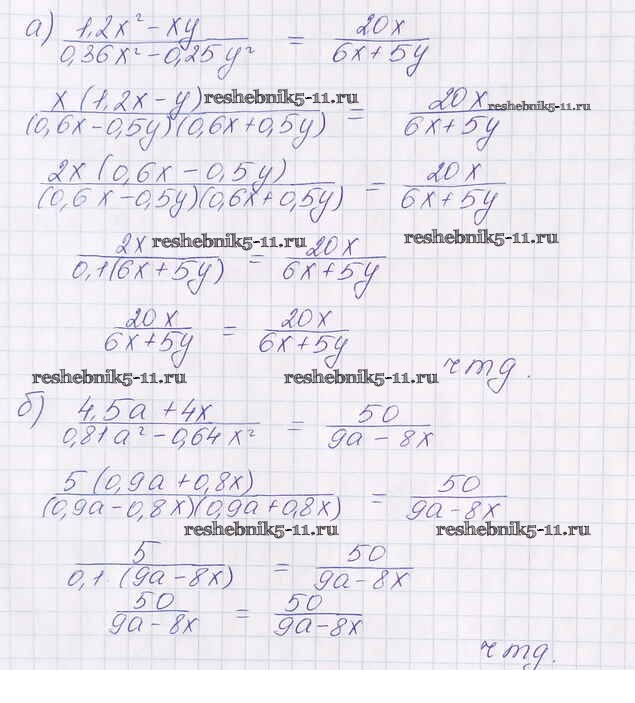 а) (1,2x² − xy)/(0,36x² − 0,25y²) = 20x/(6x + 5y)
x(1,2x − y)/((0,6x − 0,5y)(0,6x + 0,5y)) = 20x/(6x + 5y)
reshebnik5-11.ru reshebnik5-11.ru
2x(0,6x − 0,5y)/((0,6x − 0,5y)(0,6x + 0,5y)) = 20x/(6x + 5y)
reshebnik5-11.ru reshebnik5-11.ru
2x/(0,1(6x + 5y)) = 20x/(6x + 5y)
20x/(6x + 5y) = 20x/(6x + 5y)
чтд.
reshebnik5-11.ru reshebnik5-11.ru
б) (4,5a + 4x)/(0,81a² − 0,64x²) = 50/(9a − 8x)
5(0,9a + 0,8x)/((0,9a − 0,8x)(0,9a + 0,8x)) = 50/(9a − 8x)
reshebnik5-11.ru reshebnik5-11.ru
5/(0,1·(9a − 8x)) = 50/(9a − 8x)
50/(9a − 8x) = 50/(9a − 8x)
чтд.